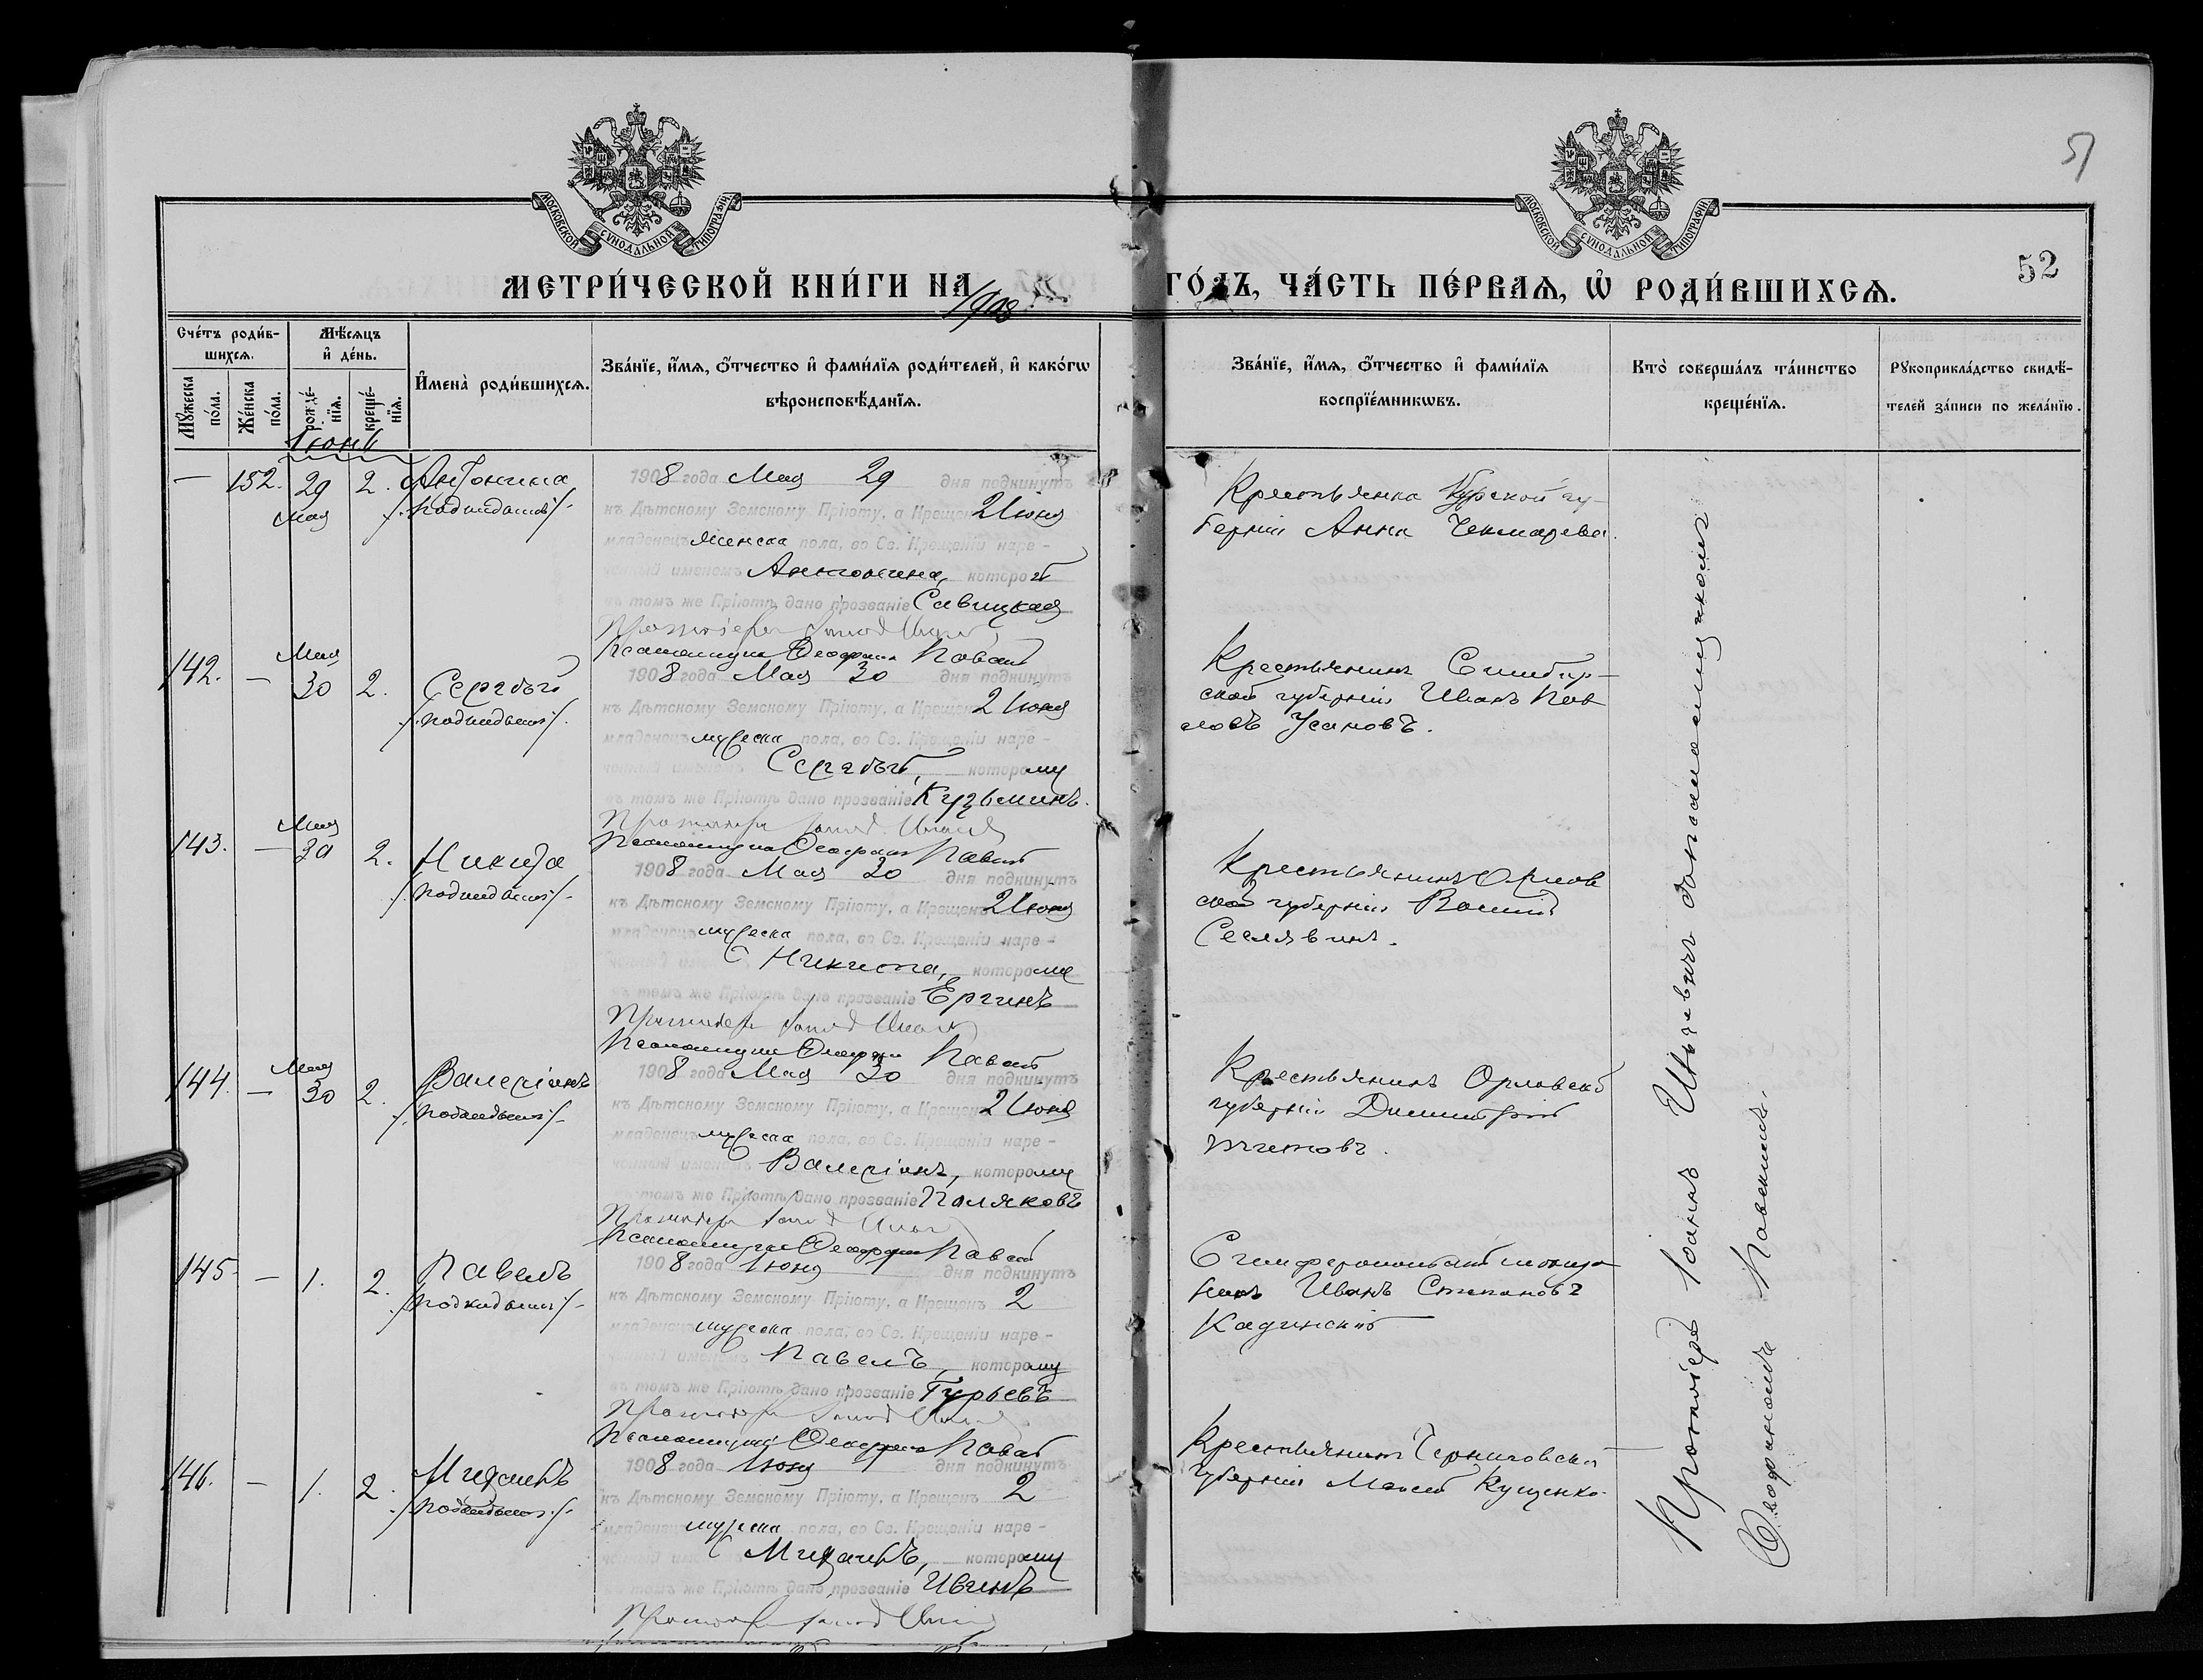 51
52
МОСКОВСКОЙ СѴНОДАЛЬНОЙ ТИПОГРАФІИ
МОСКОВСКОЙ СѴНОДАЛЬНОЙ ТИПОГРАФІИ
МЕТРИ́ЧЕСКОЙ КНИ́ГИ НА 1908 ГО́ДЪ, ЧА́СТЬ ПЕ́РВАЯ, Ѡ҆ РОДИ́ВШИХСѦ.
Сче́тъ роди́в-
шихсѧ.
Мѣ́сѧцъ
и҆ де́нь.
Мꙋ́жеска
по́ла.
Же́нска
по́ла.
рожде́-
нїѧ.
креще́-
нїѧ.
И҆мена̀ роди́вшихсѧ.
Зва́нїе, и҆́мѧ, ѻ҆́тчество и҆ фами́лїѧ роди́телей, и҆ како́гѡ
вѣроисповѣ́данїѧ.
Зва́нїе, и҆́мѧ, ѻ҆́тчество и҆ фами́лїѧ
воспрїе́мникѡвъ.
Кто̀ соверша́лъ та́инство
креще́нїѧ.
Рꙋкоприкла́дство свидѣ́-
телей за́писи по жела́нїю.
Іюнь
— 152. 29 2. Антонина
мая /подкидышъ/
1908 года Мая 29 дня подкинутъ
къ Дѣтскому Земскому Пріюту, а Крещенъ 2 Іюня
младенецъ женска пола, во Св. Крещеніи наре-
ченный именемъ Антонина, которой
въ томъ же Пріютѣ дано прозваніе Савицкая
Протоіерей Іоаннъ
Псаломщикъ Феофанъ
Крестьянка Курской гу-
берніи Анна Чекмарева.
Мая
142. — 30 2. Сергѣй
/подкидышъ/
1908 года Мая 30 дня подкинутъ
къ Дѣтскому Земскому Пріюту, а Крещенъ 2 Іюня
младенецъ мужеска пола, во Св. Крещеніи наре-
ченный именемъ Сергѣй, которому
въ томъ же Пріютѣ дано прозваніе Кузьминъ.
Протоіерей Іоаннъ
Псаломщикъ Феофанъ
Крестьянинъ Симбир-
ской губерніи Иванъ Пав
ловъ Усановъ.
Мая
143. — 30 2. Никита
/подкидышъ/
1908 года Мая 30 дня подкинутъ
къ Дѣтскому Земскому Пріюту, а Крещенъ 2 Іюня
младенецъ мужеска пола, во Св. Крещеніи наре-
ченный именемъ Никита, которому
въ томъ же Пріютѣ дано прозваніе Ергинъ
Протоіерей Іоаннъ
Псаломщикъ Феофанъ
Крестьянинъ Орлов
ской губерніи
Селявинъ.
Мая
144. — 30 2. Валеріанъ
/подкидышъ/
1908 года Мая 30 дня подкинутъ
къ Дѣтскому Земскому Пріюту, а Крещенъ 2 Іюня
младенецъ мужеска пола, во Св. Крещеніи наре-
ченный именемъ Валеріанъ, которому
въ томъ же Пріютѣ дано прозваніе Поляковъ
Протоіерей Іоаннъ
Псаломщикъ Феофанъ
Крестьянинъ Орловской
губерніи Димитрій
145. — 1. 2. Павелъ
/подкидышъ/
1908 года Іюня 1 дня подкинутъ
къ Дѣтскому Земскому Пріюту, а Крещенъ 2
младенецъ мужеска пола, во Св. Крещеніи наре-
ченный именемъ Павелъ, которому
въ томъ же Пріютѣ дано прозваніе Гурьевъ
Протоіерей Іоаннъ
Псаломщикъ Феофанъ
Симферопольскій мѣща
нинъ Иванъ Степановъ
Кадинскій
146. — 1. 2.
/подкидышъ/
1908 года Іюня 1 дня подкинутъ
къ Дѣтскому Земскому Пріюту, а Крещенъ 2
младенецъ мужеска пола, во Св. Крещеніи наре-
ченный именемъ которому
въ томъ же Пріютѣ дано прозваніе Ивинъ
Протоіерей Іоаннъ
Крестьянинъ Черниговской
губерніи Кущенко.
Протоіерей Іоаннъ